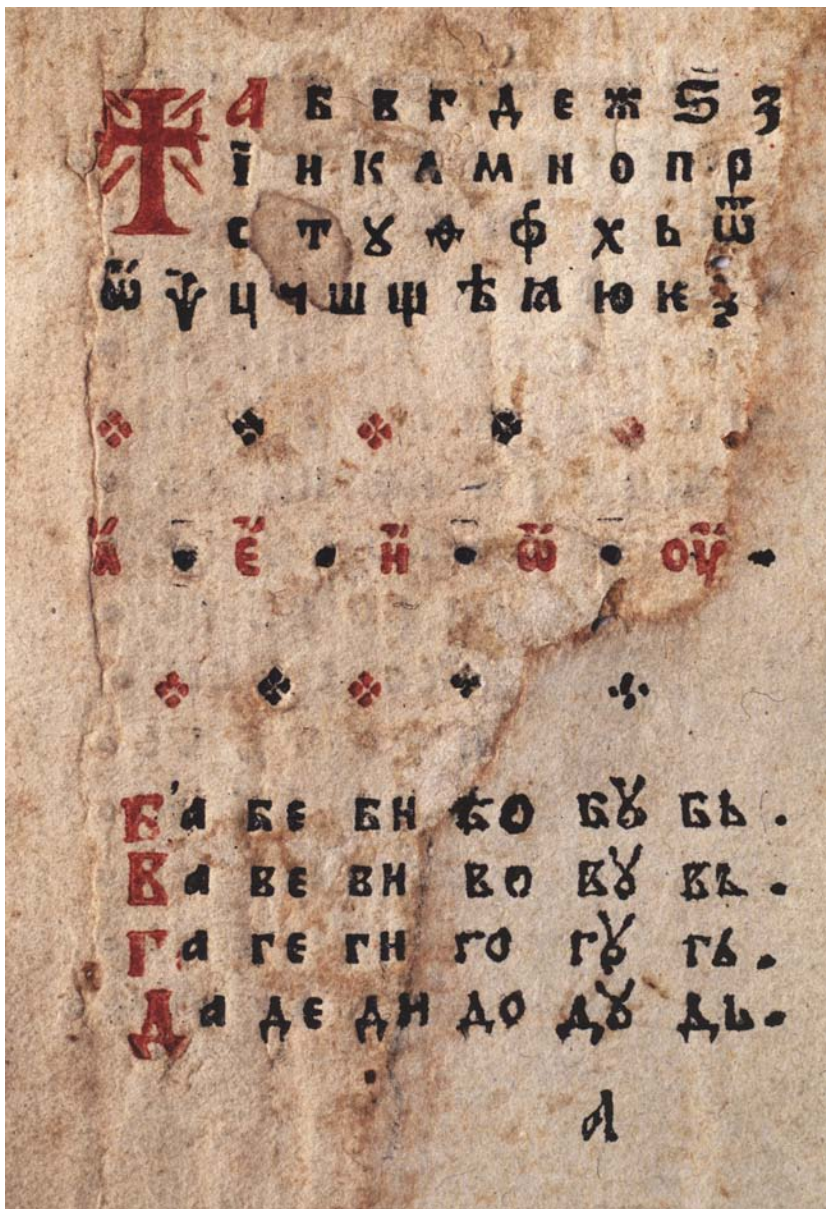 А Б В Г Д Е Ж Ѕ З
Ї Н К Л М Н О П Р
С Т Ꙋ Ѳ Ф Х Ь Ѿ
Ѡ Ѵ Ц Ч Ш Щ Ѣ Ꙗ Ю Ѥ Ѯ
А · Е · Н · Ѡ · ОУ ·
Ба бе бн бо бꙋ бь .
Ва ве вн во вꙋ вь .
Га ге гн го гꙋ гь .
Да де дн до дꙋ дь .
А